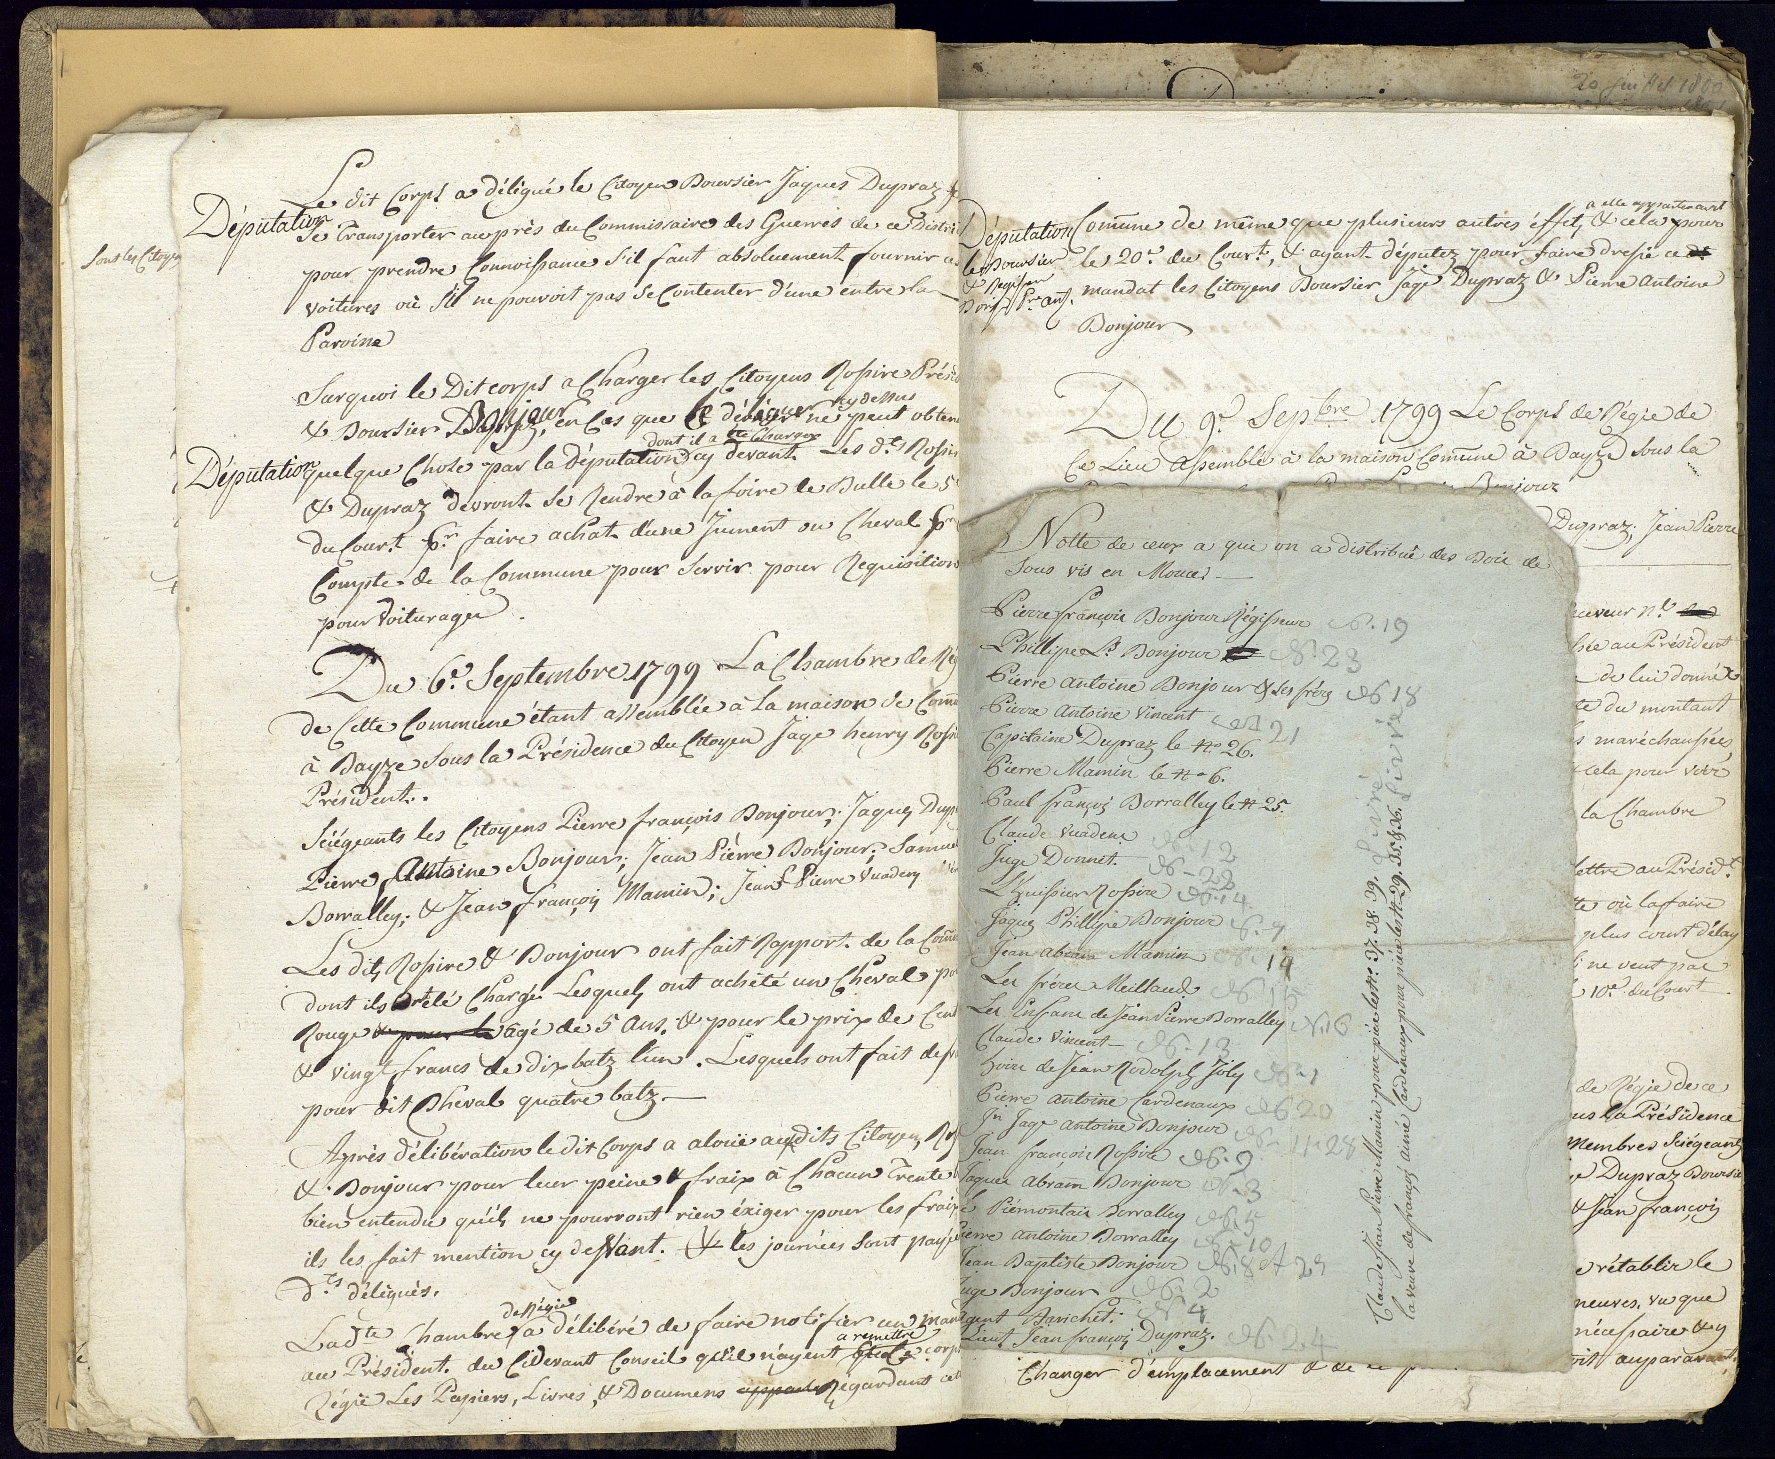 Le dit Corps a délégué le Citoyen Boursier Jaques Dupraz
Députation
Se Transporter auprès du Commissaire des Guerres de ce Distri
pour prendre Connoissance S'il faut absoluement fournir
voitures où S'il ne pouvoit pas Se Contenter d'une entre la
Paroine
Surquoi le Dit corps a Charger les Citoyens Rossire Présid
& Boursier Bonjour, en Cas que le déléguer cy dessus ne peut obten
Députation
quelque Chose par la Députation dont il a été Charger cy devant. Les dts Rossir
& Dupraz devront Se Rendre à la foire de Bulle le 5
du Court. pr faire achat d'une Jument ou Cheval pr
Compte de la Commune pour Servir pour Requisition
pour Voiturager.
Du 6e. Septembre 1799 La Chambre de Rég
de Cette Commune étant assemblée à La maison de Com̄
à Dayze Sous la Présidence du Citoyen Jage henry Rossi
Président.
Seiégeants les Citoyens Pierre françois Bonjour; Jaques Dup
Pierre Antoine Bonjour; Jean Pierre Bonjour; Samue
Borralley; & Jean françois Mamin; Jean Pierre Vuadeny
Les dits Rossire & Bonjour ont fait Rapport de la Com̄
dont ils ont été Chargé Lesquels ont acheté un Cheval po
Rouge agé de 5 Ans. & pour le prix de Cent
& vingt francs de dix batz l'un. Lesquels ont fait de fr
pour dit Cheval quatre batz.
Après délibération le dit Corps a alouë audits Citoyens Ros
& Bonjour pour leur peine & fraix à Chacun Trente
bien entendu qu'ils ne pourront rien éxiger pour les fraix
ils les fait mention cy devant. & les journées Sont payée
dts délégués.
Ladte Chambre de Régie a délibéré de faire notifier un man
au Président du Cidevant Conseil qu'ile n'ayent a remettre corp
Régie Les Papiers, Livres, & Documens Régardant
Sous les Citoyen
20 Juillet 1800
Députation
le Boursier
& Régisseur
Bonjr. Pre. Ant.
Com̄une de même que plusieurs autres éffets a elle appartenant & cela pour
le 20e. du Court., & ayant députez pour faire dresse ce
mandat les Citoyens Boursier Jage Dupraz & Pierre Antoine
Bonjour
Du 9e. Sepbre 1799 Le Corps de Régie de
Ce Lieu Assemblé à la maison Com̄une à Dayze Sous la
Bonjour
Dupraz; Jean Pierre
Receveur nl
au Président
de lui donner
du montant
maréchaussées
cela pour voir
la Chambre
lettre au Présidt.
où la faire
plus court délay
ne veut pas
10e. du Court
de Régie de ce
Sous la Présidence
Membres Seiégeants
Dupraz Boursier
& Jean françois
rétablir le
neuves, vu que
nécessaire & y
auparavant
Changer d'emplacement & de
Notte de ceux a qui on a distribué des Bois de
Sous vis en Mouces
Pierre françois Bonjour Régisseur N. 19
Phillipe Ls. Bonjour N. 23
Pierre Antoine Bonjour & Ses frères N 18
Pierre Antoine Vincent N 21
Capitaine Dupraz le No 26.
Pierre Mamin le No 6.
Paul françois Borralley le N 25.
Claude Vuadene N - 12
Juge Donnet. N - 22
L'huissier Rossire N. 14
Jaques Phillipe Bonjour N. 7
Jean Abram Mamin N. 14
Les frères Meillaud N 15
Les Enfans de Jean Pierre Borralley N. 16
Claude Vincent N. 13
hoirs de Jean Rodolph Joly N - 1
Pierre Antoine Cardenaux N 20
Jn Jage Antoine Bonjour N - 11 - 28
Jean françois Rossire N. 9
Jaques Abram Bonjour N - 3
le Piémontais Borralley N. 5
Pierre Antoine Borralley N - 10
Jean Baptiste Bonjour N. 8 et 27
Juge Bonjour N. 2
Régent Barichet. N 4
Lieut. Jean françois Dupraz. N. 24
Claude Jean Pierre Mamin pour pièce les No. 37. 38. 39. Livré
la veuve de françois ainé Cardenaux pour pièce les N. 29. 35. & 36. Livré